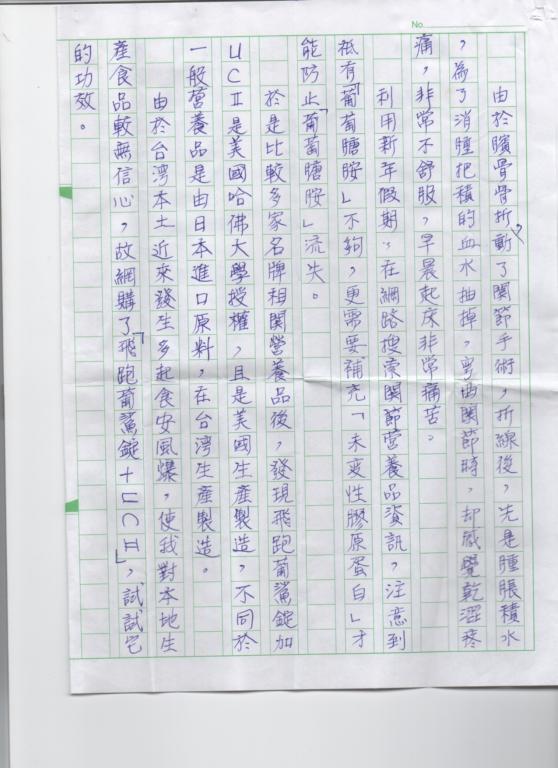 No.
由於臏骨骨折,動了關節手術,折線後,先是腫脹積水
,為了消腫把積的血水抽掉,彎曲關節時,却感覺乾澀疼
痛,非常不舒服,早晨起床非常痛苦。
利用新年假期,在網路搜索関節營養品資訊,注意到
祗有「葡萄糖胺」不夠,更需要補充「未变性膠原蛋白」才
能防止「葡萄糖胺」流失。
於是比較多家名牌相関營養品後,發現飛跑葡鯊錠加
UCⅡ是美國哈佛大學授權,且是美國生產製造,不同於
一般營養品是由日本進口原料,在台湾生產製造。
由於台湾本土近來發生多起食安風爆,使我對本地生
產食品較無信心,故網購了「飛跑葡鯊錠+UCⅡ」,試試它
的功效。